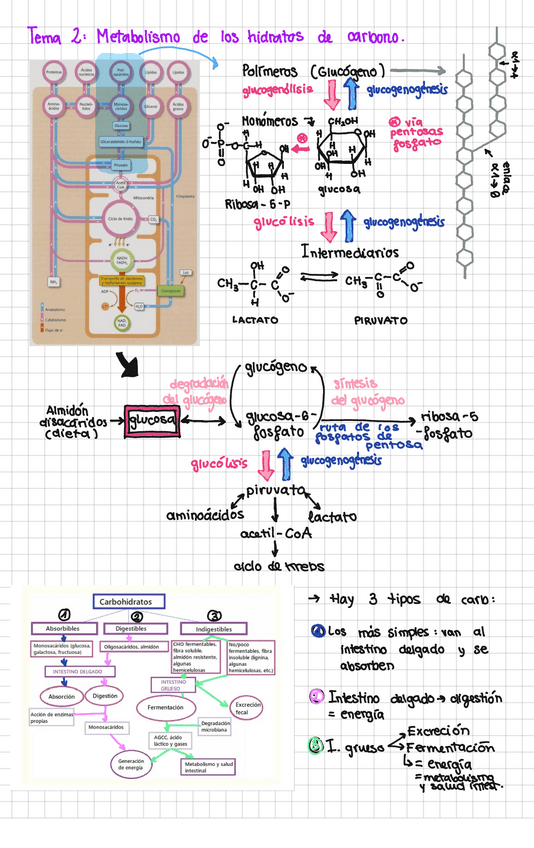 Tema 2: Metabolismo de los hidratos de carbono.
Polímeros (Glucógeno)
α1→4
glucogenólisis
glucogenogénesis
Monómeros
CH2OH
vía
pentosas
fosfato
Ribosa-5-P
glucosa
enlace
α1→6
glucólisis
glucogenogénesis
Intermediarios
LACTATO
PIRUVATO
Proteínas
Ácidos nucleicos
Polisacáridos
Lípidos
Lípidos
Glucosa
Piruvato
Acetil CoA
Mitocondria
Citoplasma
Ciclo de Krebs
CO2
ADP
ATP
NH3
Anabolismo
Catabolismo
glucógeno
degradación
del glucógeno
síntesis
del glucógeno
Almidón
disacáridos
(dieta)
glucosa
glucosa-6-
fosfato
ruta de los
fosfatos de
pentosa
ribosa-5
-fosfato
glucólisis
glucogenogénesis
piruvato
aminoácidos
lactato
acetil-CoA
ciclo de krebs
Carbohidratos
1
2
3
Absorbibles
Digestibles
Indigestibles
Monosacáridos (glucosa,
galactosa, fructosa)
Oligosacáridos, almidón
CHO fermentables,
fibra soluble,
almidón resistente,
algunas
hemicelulosas
No/poco
fermentables, fibra
insoluble (lignina,
algunas
hemicelulosas, etc.)
INTESTINO DELGADO
INTESTINO
GRUESO
Absorción
Digestión
Fermentación
Excreción
fecal
Acción de enzimas
propias
Monosacáridos
Degradación
microbiana
AGCC, ácido
láctico y gases
Generación
de energía
Metabolismo y salud
intestinal
→ Hay 3 tipos de carb:
1 Los más simples: van al
intestino delgado y se
absorben
2 Intestino delgado → digestión
= energía
3 I. grueso
Excreción
Fermentación
= energía
= metabolismo
y salud intest.